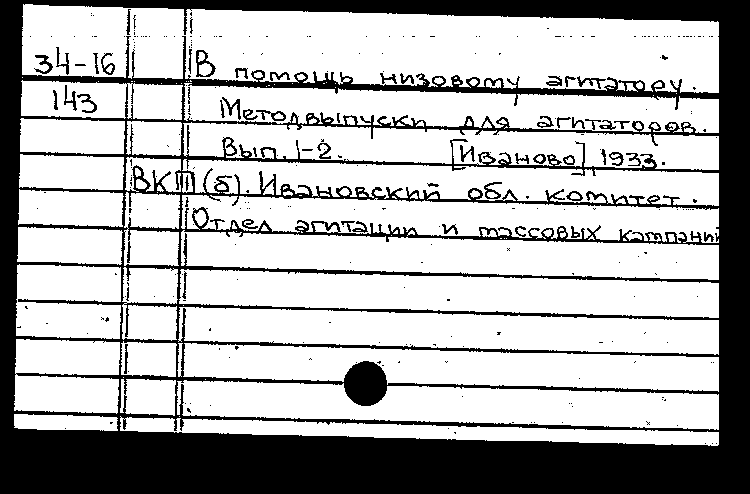 34-16 В помощь низовому агитатору.
143 Методвыпуски для агитаторов.
Вып. 1-2. [Иваново], 1933.
ВКП(б). Ивановский обл. комитет.
Отдел агитации и массовых кампаний